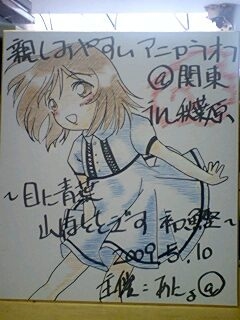 親しみやすいアニカラオフ
@関東
in 秋葉原
～目に青葉
山ほととぎす 初鰹～
2009.5.10
主催:あにき@